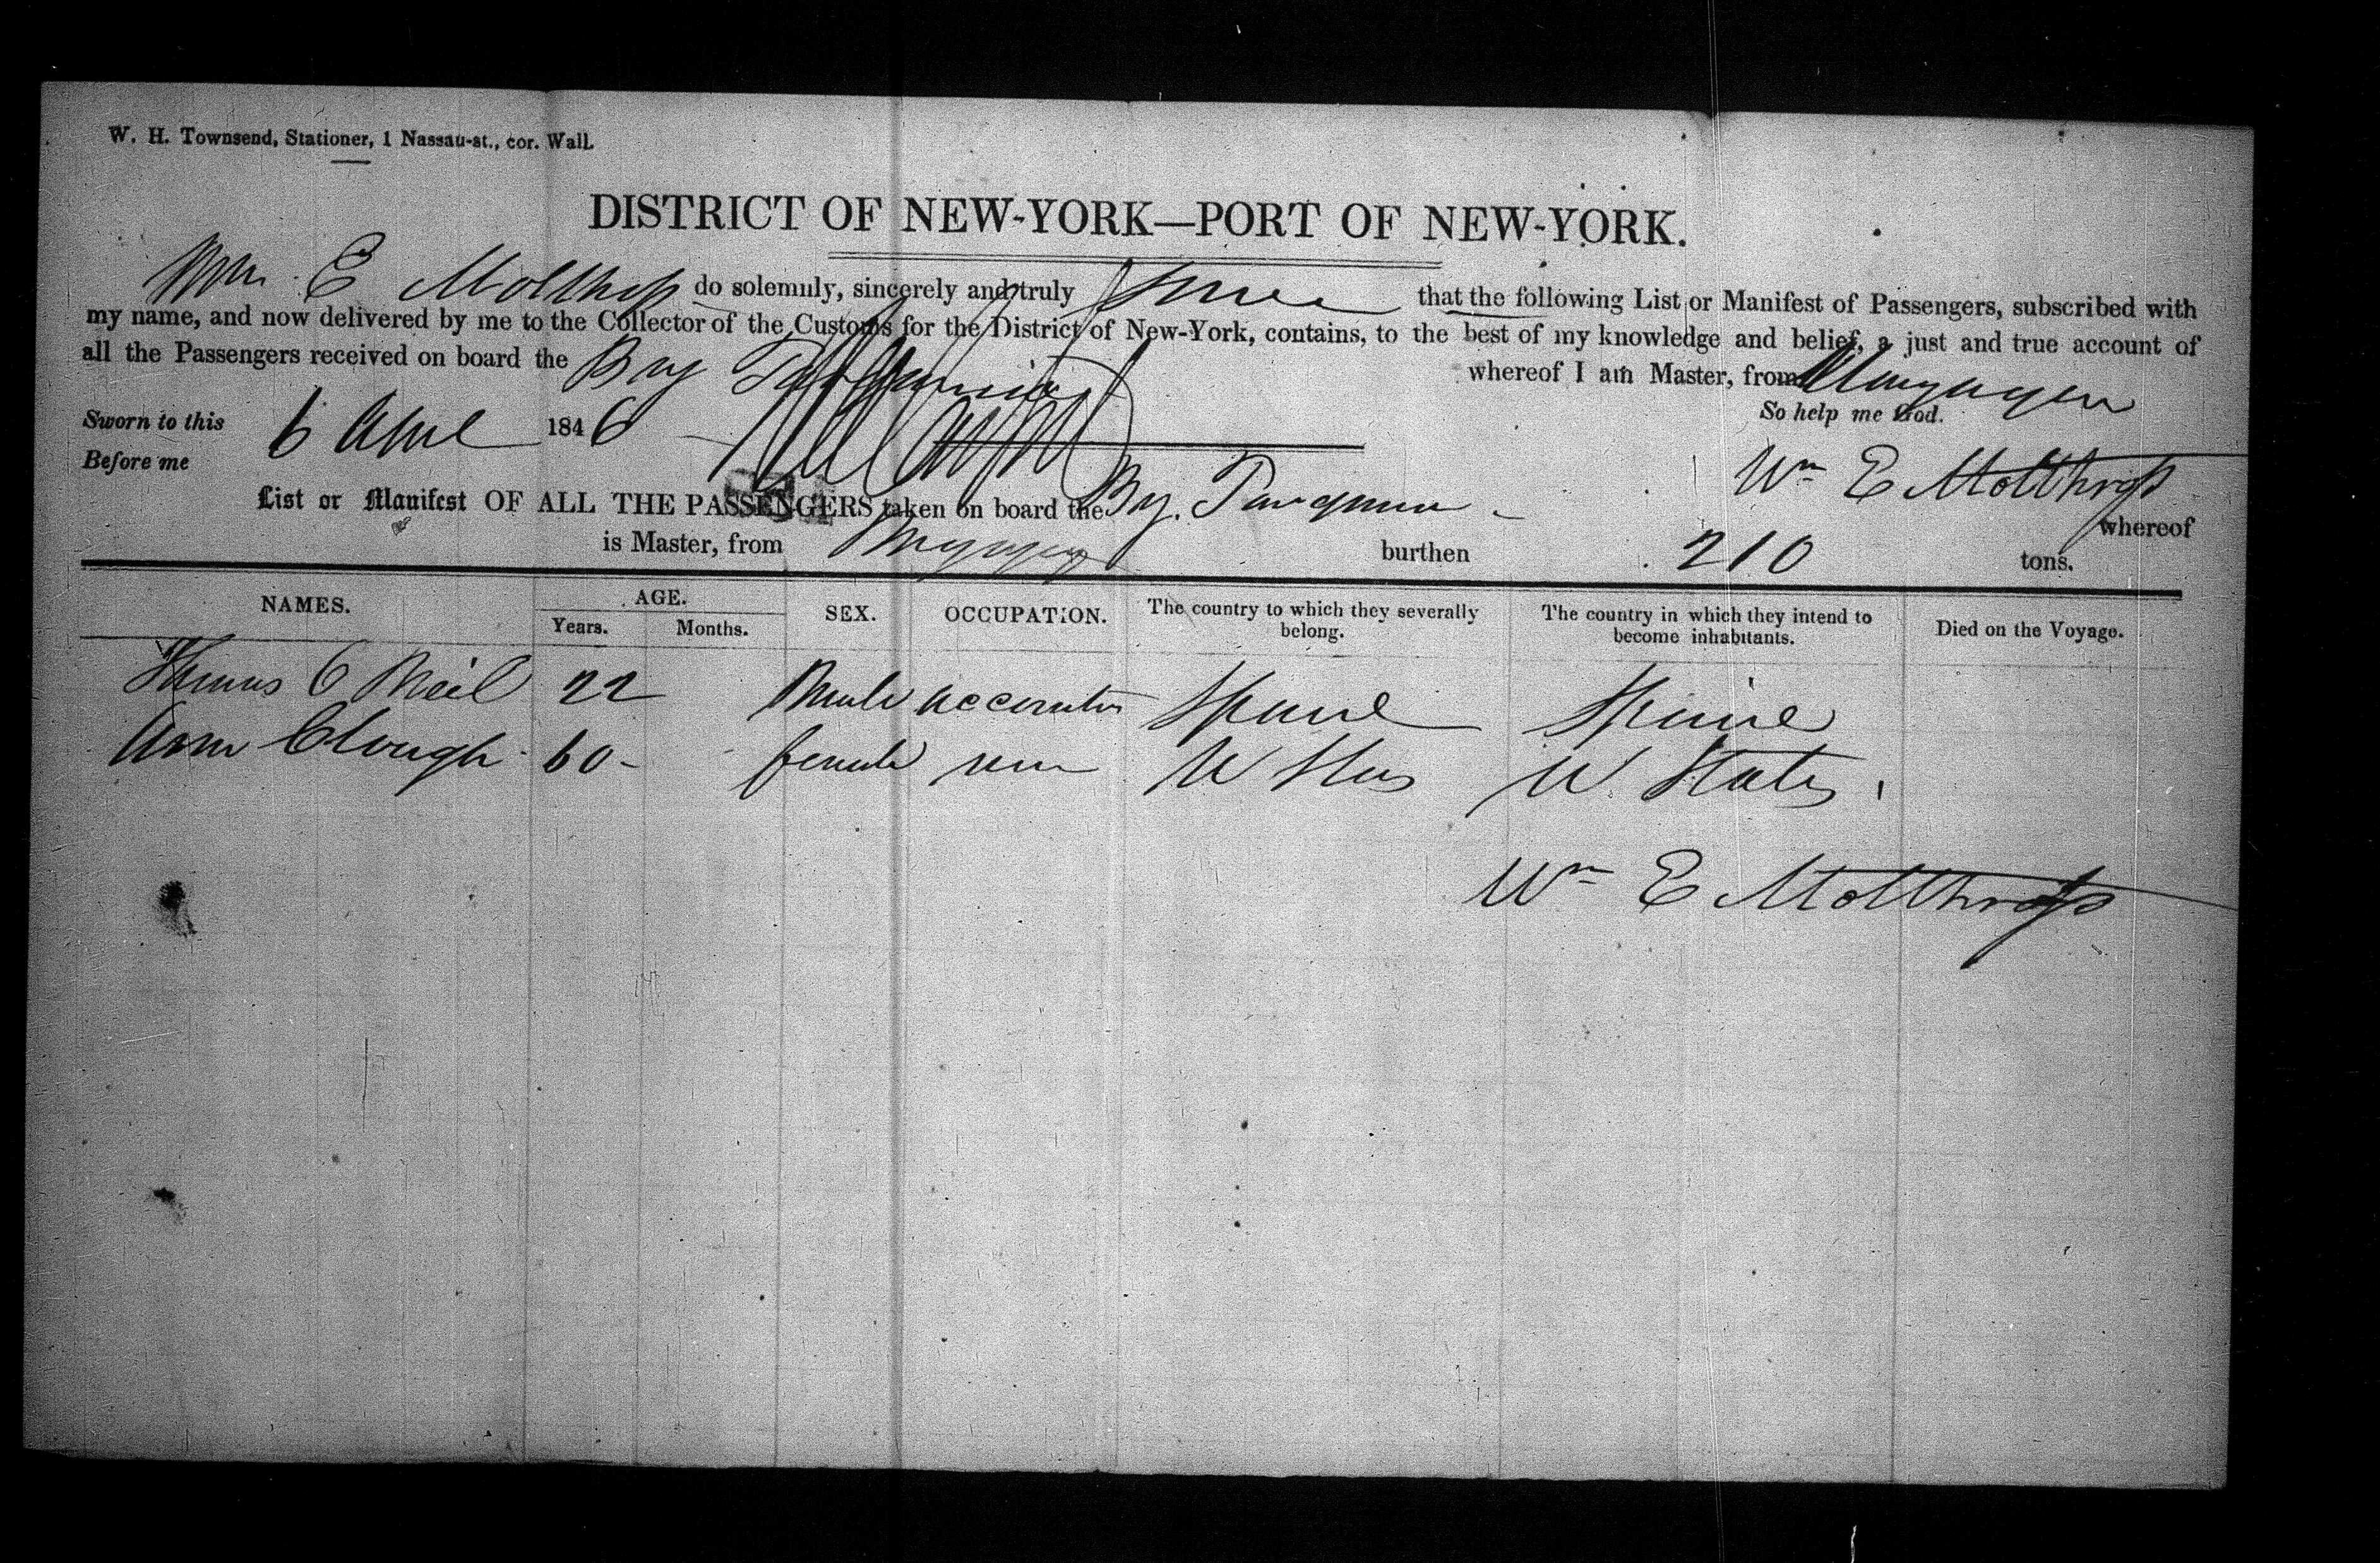 W. H. Townsend, Stationer, 1 Nassau-st., cor. Wall.
DISTRICT OF NEW-YORK—PORT OF NEW-YORK.
Wm E Molthrop do solemnly, sincerely and truly swear that the following List or Manifest of Passengers, subscribed with
my name, and now delivered by me to the Collector of the Customs for the District of New-York, contains, to the best of my knowledge and belief, a just and true account of
all the Passengers received on board the Brig whereof I am Master, from
Sworn to this 6 April 1846 So help me God.
Before me Wm E Molthrop
List or Manifest OF ALL THE PASSENGERS taken on board the whereof
is Master, from burthen 210 tons.
NAMES. AGE. Years. Months. SEX. OCCUPATION. The country to which they severally belong. The country in which they intend to become inhabitants. Died on the Voyage.
Thomas O Neil 22 Male Spain Spain
Ann Clough 60 female U States U States
Wm E Molthrop